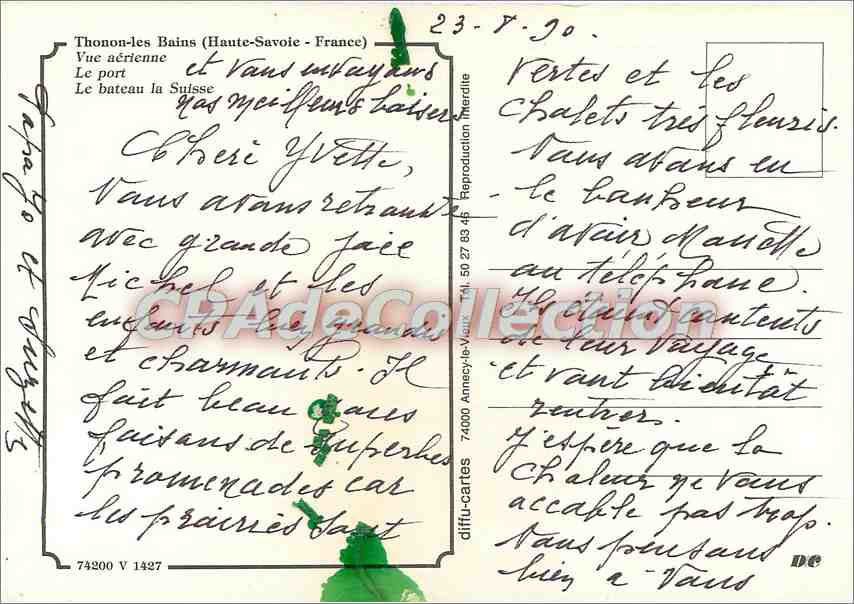 Thonon-les Bains (Haute-Savoie - France)
Vue aérienne
Le port
Le bateau la Suisse
23-8-90.
Cheri Yvette,
Nous avons retrouvé
avec grande joie
Michel et les
enfants bien grandes
et charmants. Il
fait beau nous
faisons de superbes
promenades car
les prairies sont
vertes et les
chalets très fleuris.
Nous avons eu
le bonheur
d'avoir Manette
au téléphone.
Ils étaient contents
de leur voyage
et vont bientôt
rentrer.
J'espère que la
chaleur ne vous
accable pas trop.
Nous pensons
bien a vous
et vous envoyons
nos meilleurs baisers
et Suzette
CPAdeCollection
diffu-cartes 74000 Annecy-le-Vieux Tél. 50 27 83 45 Reproduction interdite
74200 V 1427
DC